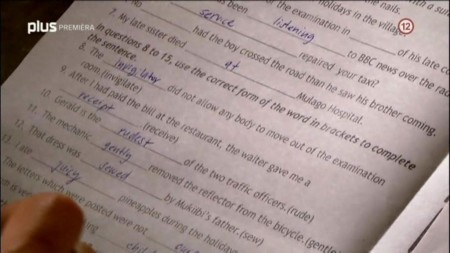 plus PREMIÉRA
12
with a sun
the nails.
holidays in the village
been listening
for the examination in of his late co
service to BBC news over the rad
repaired your taxi?
No had the boy crossed the road than he saw his brother coming.
7. My late sister died at Mulago Hospital.
In questions 8 to 15, use the correct form of the word in brackets to complete
the sentence.
8. The invigilator did not allow any body to move out of the examination
room.(invigilate)
9. After I had paid the bill at the restaurant, the waiter gave me a
recept (receive)
10. Gerald is the rudest of the two traffic officers.(rude)
11. The mechanic gently removed the reflector from the bicycle.(gentle
12. That dress was sewed by Mukiibi's father.(sew)
13. I ate juicy pineapples during the holidays
The letters which were posted were not